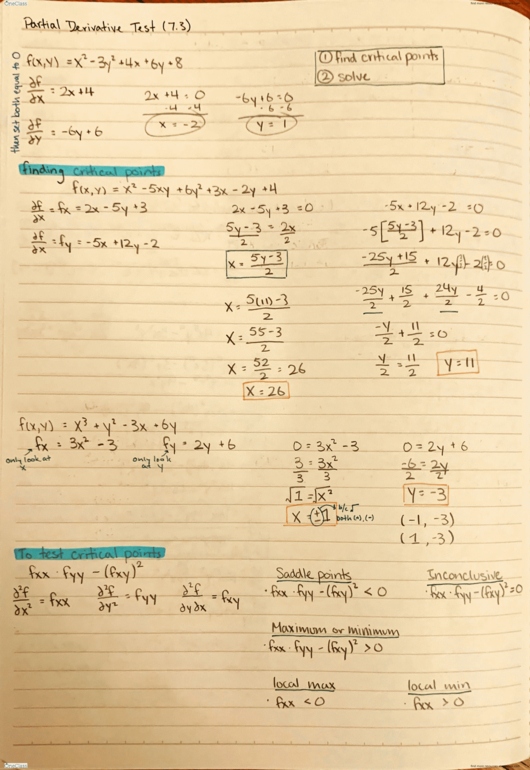 OneClass
Partial Derivative Test (7.3)
then set both equal to 0
f(x,y) = x² - 3y² + 4x + 6y + 8
① find critical points
② solve
∂f/∂x = 2x + 4
2x + 4 = 0
-4 -4
x = -2
-6y + 6 = 0
-6 -6
y = 1
∂f/∂y = -6y + 6
finding critical points
f(x,y) = x² - 5xy + 6y² + 3x - 2y + 4
∂f/∂x = fx = 2x - 5y + 3
∂f/∂y = fy = -5x + 12y - 2
2x - 5y + 3 = 0
5y-3/2 = 2x/2
x = 5y-3/2
x = 5(11)-3/2
x = 55-3/2
x = 52/2 = 26
x = 26
-5x + 12y - 2 = 0
-5[5y-3/2] + 12y - 2 = 0
-25y+15/2 + 12y(2/2) - 2(2/2) = 0
-25y/2 + 15/2 + 24y/2 - 4/2 = 0
-y/2 + 11/2 = 0
y/2 = 11/2
y = 11
f(x,y) = x³ + y² - 3x + 6y
fx = 3x² - 3
only look at x
fy = 2y + 6
only look at y
0 = 3x² - 3
3/3 = 3x²/3
√1 = √x²
x = ±1
b/c √ both (+), (-)
0 = 2y + 6
-6/2 = 2y/2
y = -3
(-1, -3)
(1, -3)
To test critical points
fxx · fyy - (fxy)²
∂²f/∂x² = fxx
∂²f/∂y² = fyy
∂²f/∂y∂x = fxy
Saddle points
· fxx · fyy - (fxy)² < 0
Inconclusive
· fxx · fyy - (fxy)² = 0
Maximum or minimum
· fxx · fyy - (fxy)² > 0
local max
· fxx < 0
local min
· fxx > 0
OneClass
OneClass